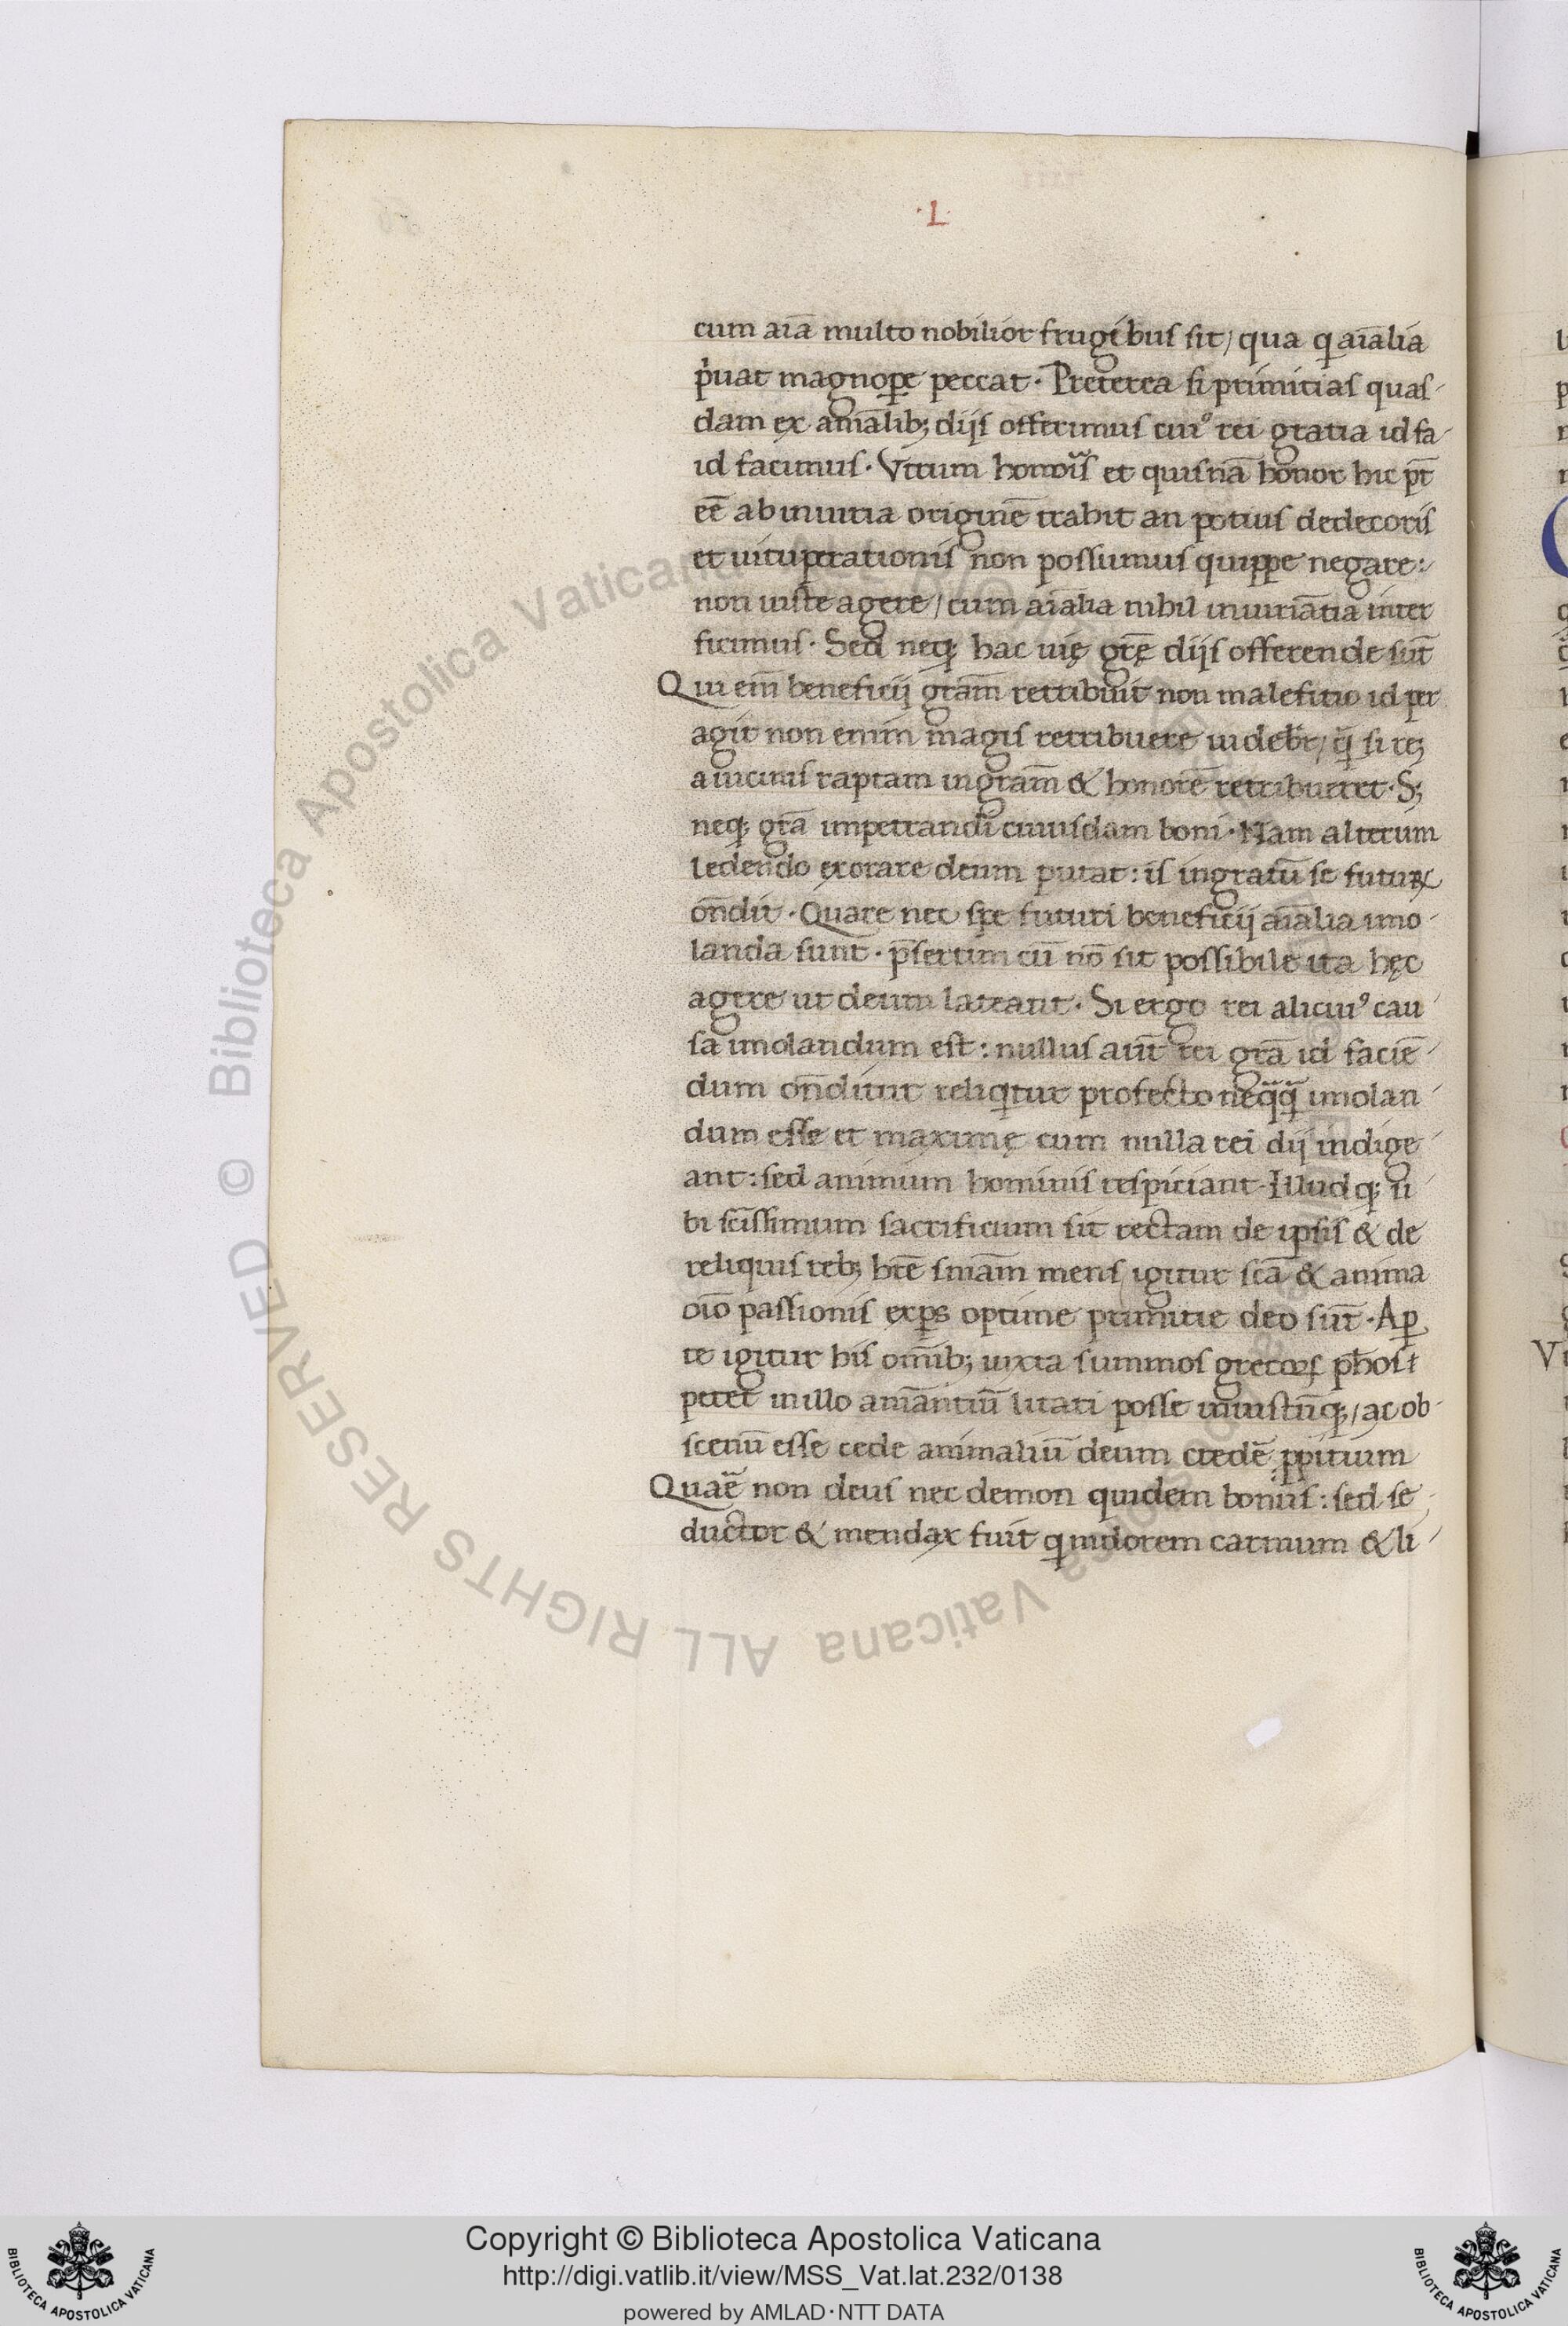 ·L·
cum aīa multo nobilior frugibus sit/ qua q aīalia
p̍uat magnope peccat· Preterea si primitias quas-
dam ex aīalib; dijs offerimus cui⁹ rei gratia id fa-
id facimus· Vtrum honoris et quisnā honor hic pt̄
eē ab iniuria originē trahit an potius dedecoris
et uituperationis non possumus quippe negare:
non iuste agere/ cum aīalia nihil iniuriātia inter
ficimus· Sed neq; hac uię grę̄ dijs offerende sūt
Qui em̄ beneficij grām retribuit non malefitio id per
agit non enim magis retribuere uidebr̄/ q̄ si rē
a uicinis raptam in grām & honorē retribueret· S;
neq; grā impetrandi cuiusdam boni· Nam alterum
ledendo exorare deum putat: is ingratū se futuꝝ
on̄dit· Quare nec spe futuri beneficij aīalia imo-
landa sunt· p̄sertim cū nō sit possibile ita hęc
agere ut deum lateant· Si ergo rei alicui⁹ cau-
sa imolandum est: nullus aūt rei grā id faciē-
dum on̄dunt reliqtur profecto neq̄q̄ imolan-
dum esse et maximę cum nulla rei dij indige-
ant: sed animum hominis respiciant· Illudq; ti-
bi sc̄issimum sacrificium sit rectam de ipsis & de
reliquis reb; hr̄e sniām mens igitur scā & anima
oīo passionis exꝑs optime primitie deo sūt· Aꝑ
te igitur his om̄ib; iuxta summos grecoꝝ ph̄os
in illo amantiū litari posse iniustūq;/ ac ob-
scenū esse cede animaliū deum credē ꝓpitium
Quaē non deus nec demon quidem bonus: sed se-
ductor & mendax fuit q nidorem carnium & li-
© Biblioteca Apostolica Vaticana ALL RIGHTS RESERVED
Copyright © Biblioteca Apostolica Vaticana
http://digi.vatlib.it/view/MSS_Vat.lat.232/0138
powered by AMLAD·NTT DATA
BIBLIOTECA APOSTOLICA VATICANA
BIBLIOTECA APOSTOLICA VATICANA